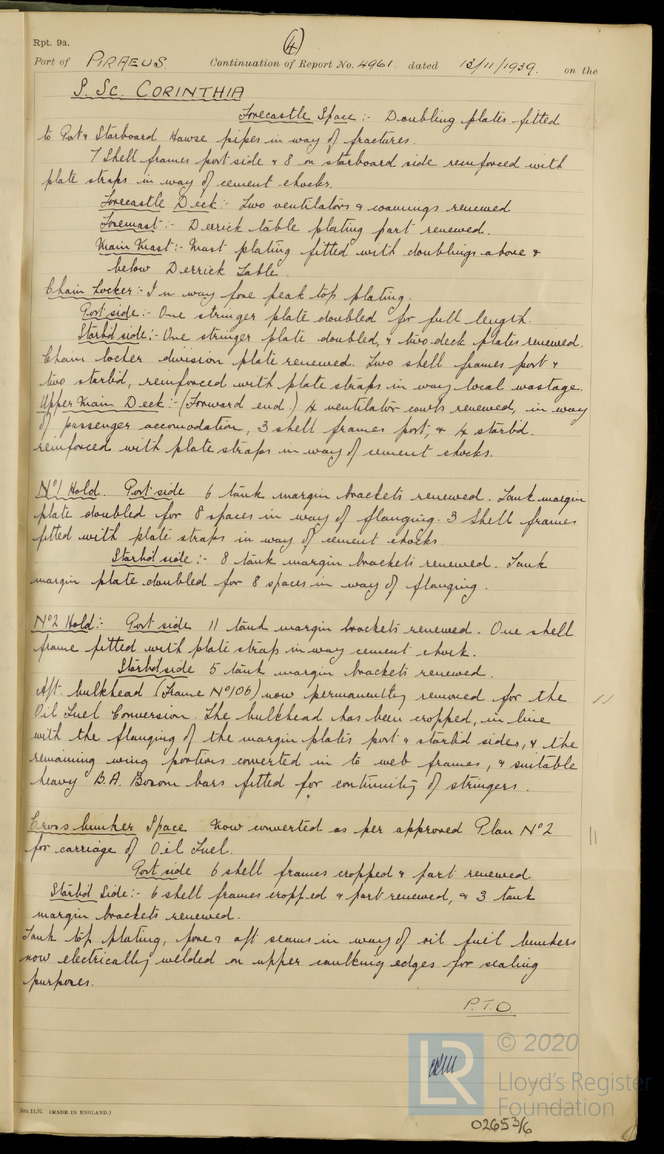 (4)
Rpt. 9a.
Port of PIRAEUS Continuation of Report No. 4961. dated 13/11/1939. on the
S. Sc. CORINTHIA
Forecastle Space :- Doubling plates fitted
to Port & Starboard Hawse pipes in way of fractures.
7 Shell frames port side & 8 on starboard side reinforced with
plate straps in way of cement chocks.
Forecastle Deck :- Two ventilators & coamings renewed
Foremast :- Derrick table plating part renewed.
Main Mast :- Mast plating fitted with doublings above &
below Derrick Table.
Chain Locker :- In way fore peak top plating.
Port side :- One stringer plate doubled for full length.
Starb'd side :- One stringer plate doubled, & two deck plates renewed.
Chain locker division plate renewed. Two shell frames port &
two starb'd, reinforced with plate straps in way local wastage.
Upper Main Deck :- (Forward end.) 4 ventilator cowls renewed, in way
of passenger accomodation, 3 shell frames port, & 4 starb'd.
reinforced with plate straps in way of cement chocks.
No1 Hold. Port side 6 tank margin brackets renewed. Tank margin
plate doubled for 8 spaces in way of flanging. 3 Shell frames
fitted with plate straps in way of cement chocks
Starb'd side :- 8 tank margin brackets renewed. Tank
margin plate doubled for 8 spaces in way of flanging.
No2 Hold :- Port side 11 tank margin brackets renewed. One shell
frame fitted with plate strap in way cement chock.
Starb'd side 5 tank margin brackets renewed.
Aft. bulkhead (Frame No106) now permanently removed for the
Oil Fuel Conversion. The bulkhead has been cropped, in line
with the flanging of the margin plates port & starb'd sides, & the
remaining wing portions converted in to web frames, & suitable
heavy B.A. Bosom bars fitted for continuity of stringers.
Cross bunker Space Now converted as per approved Plan No2
for carriage of Oil Fuel.
Port side 6 shell frames cropped & part renewed
Starb'd Side :- 6 shell frames cropped & part renewed, & 3 tank
margin brackets renewed.
Tank top plating, fore & aft seams in way of oil fuel bunkers
now electrically welded on upper caulking edges for sealing
purposes.
P.T.O
© 2020
LR
Lloyd's Register
Foundation
(MADE IN ENGLAND.)
02653/6